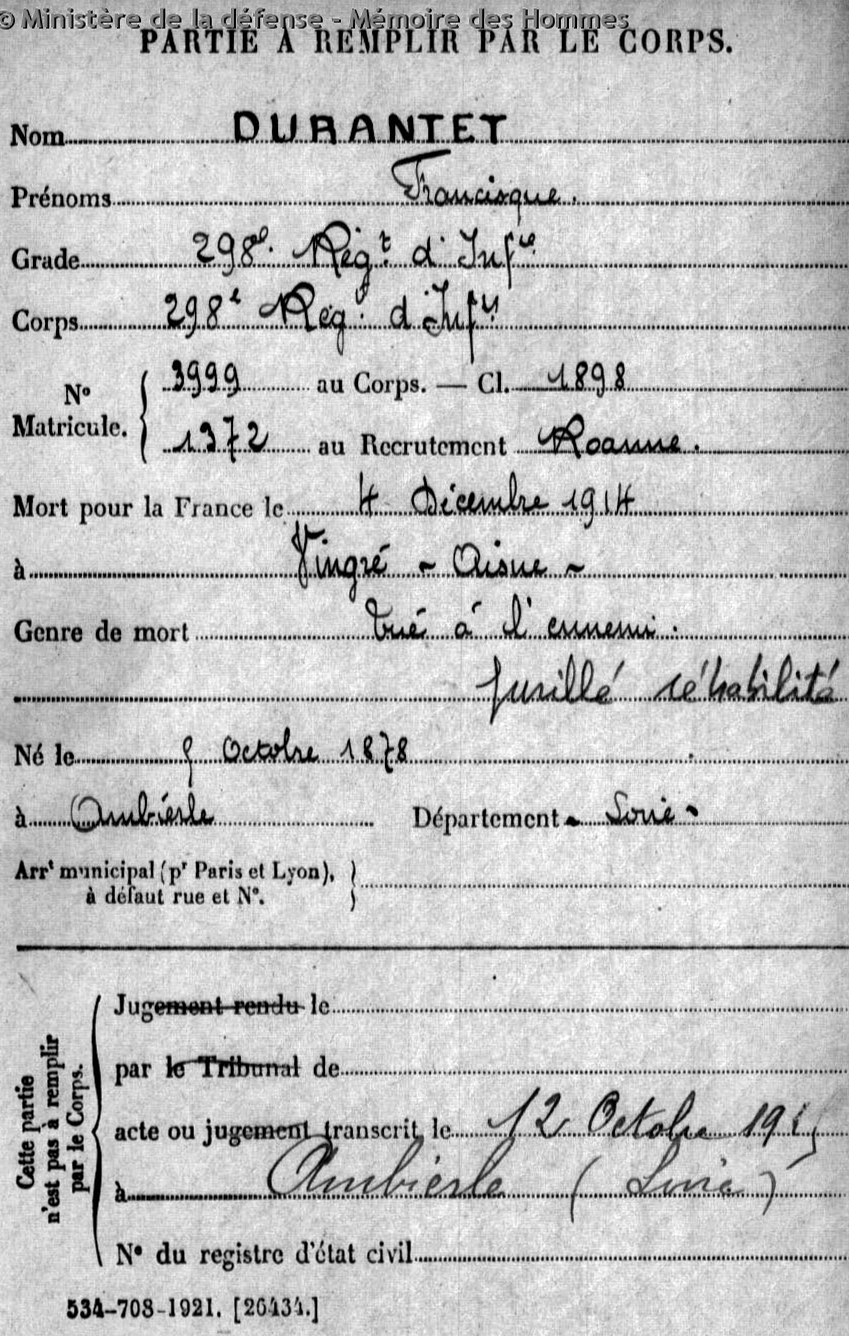 © Ministère de la défense - Mémoire des Hommes
PARTIE A REMPLIR PAR LE CORPS.
Nom DURANTET
Prénoms Francisque.
Grade 298e. Régt d'Infie
Corps 298e Rég. d'Infie
No Matricule. 3999 au Corps. — Cl. 1898
1372 au Recrutement Roanne.
Mort pour la France le 4 Décembre 1914
à Vingré - Aisne -
Genre de mort tué à l'ennemi.
fusillé réhabilité
Né le 5 Octobre 1878
à Ambierle Département - Loire -
Arrt municipal (pr Paris et Lyon),
à défaut rue et No.
Cette partie n'est pas à remplir par le Corps.
Jugement rendu le
par le Tribunal de
acte ou jugement transcrit le 12 Octobre
à Ambierle (Loire)
No du registre d'état civil
534-708-1921. [26434.]